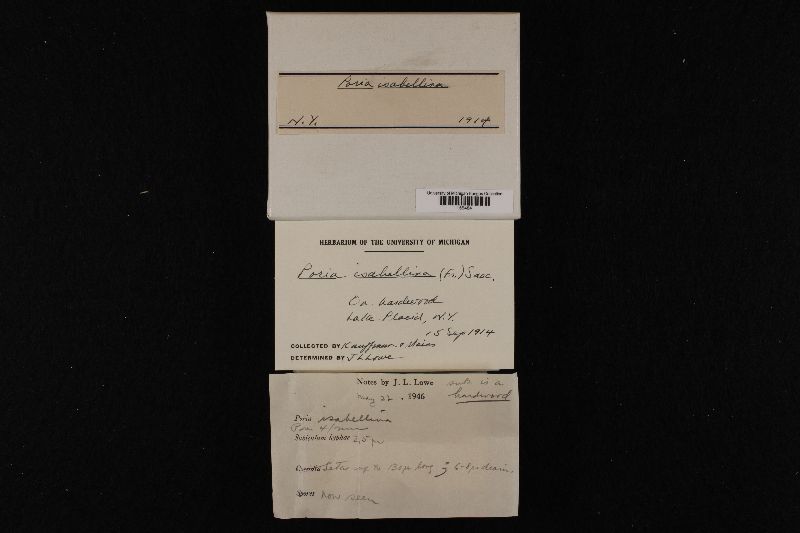 Poria isabellina
N.Y. 1914
University of Michigan Fungus Collection
HERBARIUM OF THE UNIVERSITY OF MICHIGAN
Poria isabellina (Fr.) Sacc.
On hardwood
Lake Placid, N.Y.
5 Sep 1914
COLLECTED BY Kauffman & Mains
DETERMINED BY J L Lowe
Notes by J. L. Lowe
May 22, 1946
sub is a
hardwood
Poria isabellina
Pores 4/mm
Subiculum hyphae 2,5 µ
Cystidia Setae up to long; 6-8µ diam.
Spores none seen